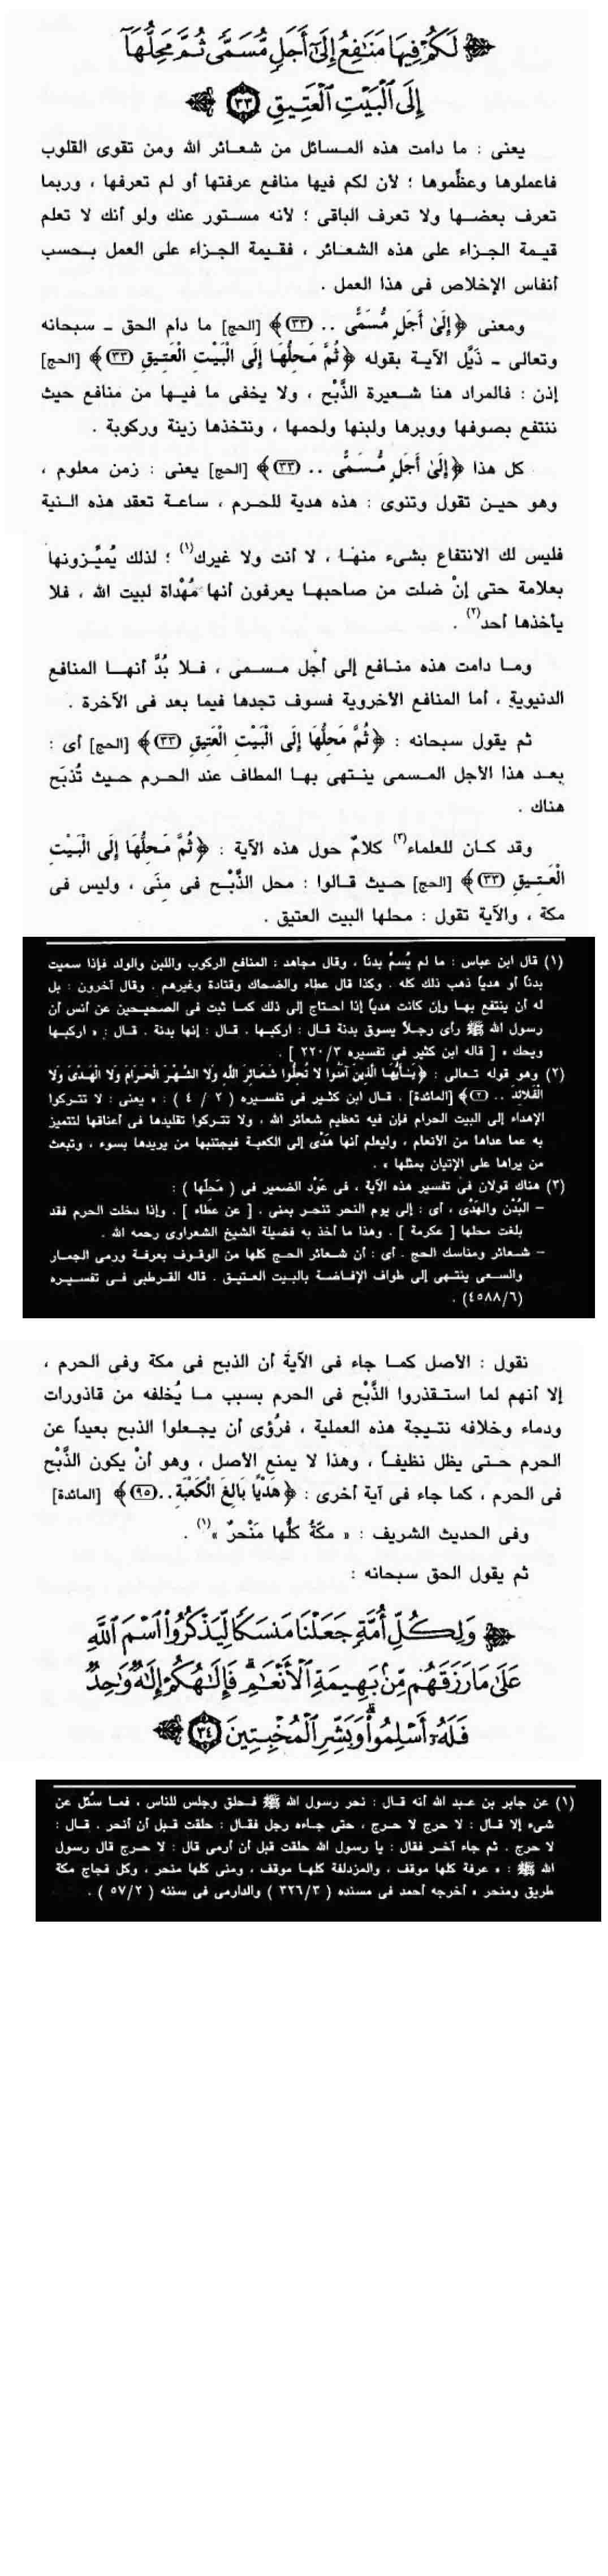 لَكُمْ فِيهَا مَنَٰفِعُ إِلَىٰٓ أَجَلٍ مُّسَمًّى ثُمَّ مَحِلُّهَآ
إِلَى ٱلْبَيْتِ ٱلْعَتِيقِ ٣٣
يعنى : ما دامت هذه المسائل من شعائر الله ومن تقوى القلوب
فاعملوها وعظِّموها ؛ لأن لكم فيها منافع عرفتها أو لم تعرفها ، وربما
تعرف بعضها ولا تعرف الباقى ؛ لأنه مستور عنك ولو أنك لا تعلم
قيمة الجزاء على هذه الشعائر ، فقيمة الجزاء على العمل بحسب
أنفاس الإخلاص فى هذا العمل .
ومعنى ﴿ إِلَىٰ أَجَلٍ مُّسَمًّى .. (٣٣) ﴾ [الحج] ما دام الحق ـ سبحانه
وتعالى ـ ذَيَّل الآية بقوله ﴿ ثُمَّ مَحِلُّهَا إِلَى الْبَيْتِ الْعَتِيقِ (٣٣) ﴾ [الحج]
إذن : فالمراد هنا شعيرة الذَّبْح ، ولا يخفى ما فيها من منافع حيث
ننتفع بصوفها ووبرها ولبنها ولحمها ، ونتخذها زينة وركوبة .
كل هذا ﴿ إِلَىٰ أَجَلٍ مُّسَمًّى .. (٣٣) ﴾ [الحج] يعنى : زمن معلوم ،
وهو حين تقول وتنوى : هذه هدية للحرم ، ساعة تعقد هذه النية
فليس لك الانتفاع بشىء منها ، لا أنت ولا غيرك (١) ؛ لذلك يُميِّزونها
بعلامة حتى إنْ ضلت من صاحبها يعرفون أنها مُهْداة لبيت الله ، فلا
يأخذها أحد (٢) .
وما دامت هذه منافع إلى أجل مسمى ، فلا بُدَّ أنها المنافع
الدنيوية ، أما المنافع الأخروية فسوف تجدها فيما بعد فى الآخرة .
ثم يقول سبحانه : ﴿ ثُمَّ مَحِلُّهَا إِلَى الْبَيْتِ الْعَتِيقِ (٣٣) ﴾ [الحج] أى :
بعد هذا الأجل المسمى ينتهى بها المطاف عند الحرم حيث تُذبَح
هناك .
وقد كان للعلماء (٣) كلامٌ حول هذه الآية : ﴿ ثُمَّ مَحِلُّهَا إِلَى الْبَيْتِ
الْعَتِيقِ (٣٣) ﴾ [الحج] حيث قالوا : محل الذَّبْح فى مِنَى ، وليس فى
مكة ، والآية تقول : محلها البيت العتيق .
(١) قال ابن عباس : ما لم يُسمَّ بدناً ، وقال مجاهد : المنافع الركوب واللبن والولد فإذا سميت
بدناً أو هدياً ذهب ذلك كله . وكذا قال عطاء والضحاك وقتادة وغيرهم . وقال آخرون : بل
له أن ينتفع بها وإن كانت هدياً إذا احتاج إلى ذلك كما ثبت فى الصحيحين عن أنس أن
رسول الله ﷺ رأى رجلاً يسوق بدنة قال : اركبها . قال : إنها بدنة . قال : « اركبها
ويحك » [ قاله ابن كثير فى تفسيره ٢٢٠/٣ ] .
(٢) وهو قوله تعالى : ﴿ يَـٰأَيُّهَا الَّذِينَ آمَنُوا لا تُحِلُّوا شَعَائِرَ اللَّهِ وَلا الشَّهْرَ الْحَرَامَ وَلا الْهَدْىَ وَلا
الْقَلائِدَ .. (٢) ﴾ [المائدة] . قال ابن كثير فى تفسيره ( ٢ / ٤ ) : « يعنى : لا تتركوا
الإهداء إلى البيت الحرام فإن فيه تعظيم شعائر الله ، ولا تتركوا تقليدها فى أعناقها لتتميز
به عما عداها من الأنعام ، وليعلم أنها هَدْى إلى الكعبة فيجتنبها من يريدها بسوء ، وتبعث
من يراها على الإتيان بمثلها » .
(٣) هناك قولان فى تفسير هذه الآية ، فى عَوْد الضمير فى ( مَحلّها ) :
– البُدْن والهَدْى ، أى : إلى يوم النحر تنحر بمنى . [ عن عطاء ] . وإذا دخلت الحرم فقد
بلغت محلها [ عكرمة ] . وهذا ما أخذ به فضيلة الشيخ الشعراوى رحمه الله .
– شعائر ومناسك الحج . أى : أن شعائر الحج كلها من الوقوف بعرفة ورمى الجمار
والسعى ينتهى إلى طواف الإفاضة بالبيت العتيق . قاله القرطبى فى تفسيره
(٤٥٨٨/٦) .
نقول : الأصل كما جاء فى الآية أن الذبح فى مكة وفى الحرم ،
إلا أنهم لما استقذروا الذَّبْح فى الحرم بسبب ما يُخلفه من قاذورات
ودماء وخلافه نتيجة هذه العملية ، فرُؤى أن يجعلوا الذبح بعيداً عن
الحرم حتى يظل نظيفاً ، وهذا لا يمنع الأصل ، وهو أنْ يكون الذَّبْح
فى الحرم ، كما جاء فى آية أخرى : ﴿ هَدْيًا بَالِغَ الْكَعْبَةِ.. (٩٥) ﴾ [المائدة]
وفى الحديث الشريف : « مكَّةُ كلُّها مَنْحرٌ » (١) .
ثم يقول الحق سبحانه :
وَلِكُلِّ أُمَّةٍ جَعَلْنَا مَنسَكًا لِّيَذْكُرُوا۟ ٱسْمَ ٱللَّهِ
عَلَىٰ مَا رَزَقَهُم مِّنۢ بَهِيمَةِ ٱلْأَنْعَٰمِ فَإِلَٰهُكُمْ إِلَٰهٌ وَٰحِدٌ
فَلَهُۥٓ أَسْلِمُوا۟ وَبَشِّرِ ٱلْمُخْبِتِينَ ٣٤
(١) عن جابر بن عبد الله أنه قال : نحر رسول الله ﷺ فحلق وجلس للناس ، فما سُئل عن
شىء إلا قال : لا حرج لا حرج ، حتى جاءه رجل فقال : حلقت قبل أن أنحر . قال :
لا حرج . ثم جاء آخر فقال : يا رسول الله حلقت قبل أن أرمى قال : لا حرج قال رسول
الله ﷺ : « عرفة كلها موقف ، والمزدلفة كلها موقف ، ومنى كلها منحر ، وكل فجاج مكة
طريق ومنحر » أخرجه أحمد فى مسنده ( ٣٢٦/٣ ) والدارمى فى سننه ( ٥٧/٢ ) .